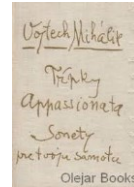 Vojtech Mihálik
Tŕpky
Appassionata
Sonety
pre tvoju samotu
Olejar Books